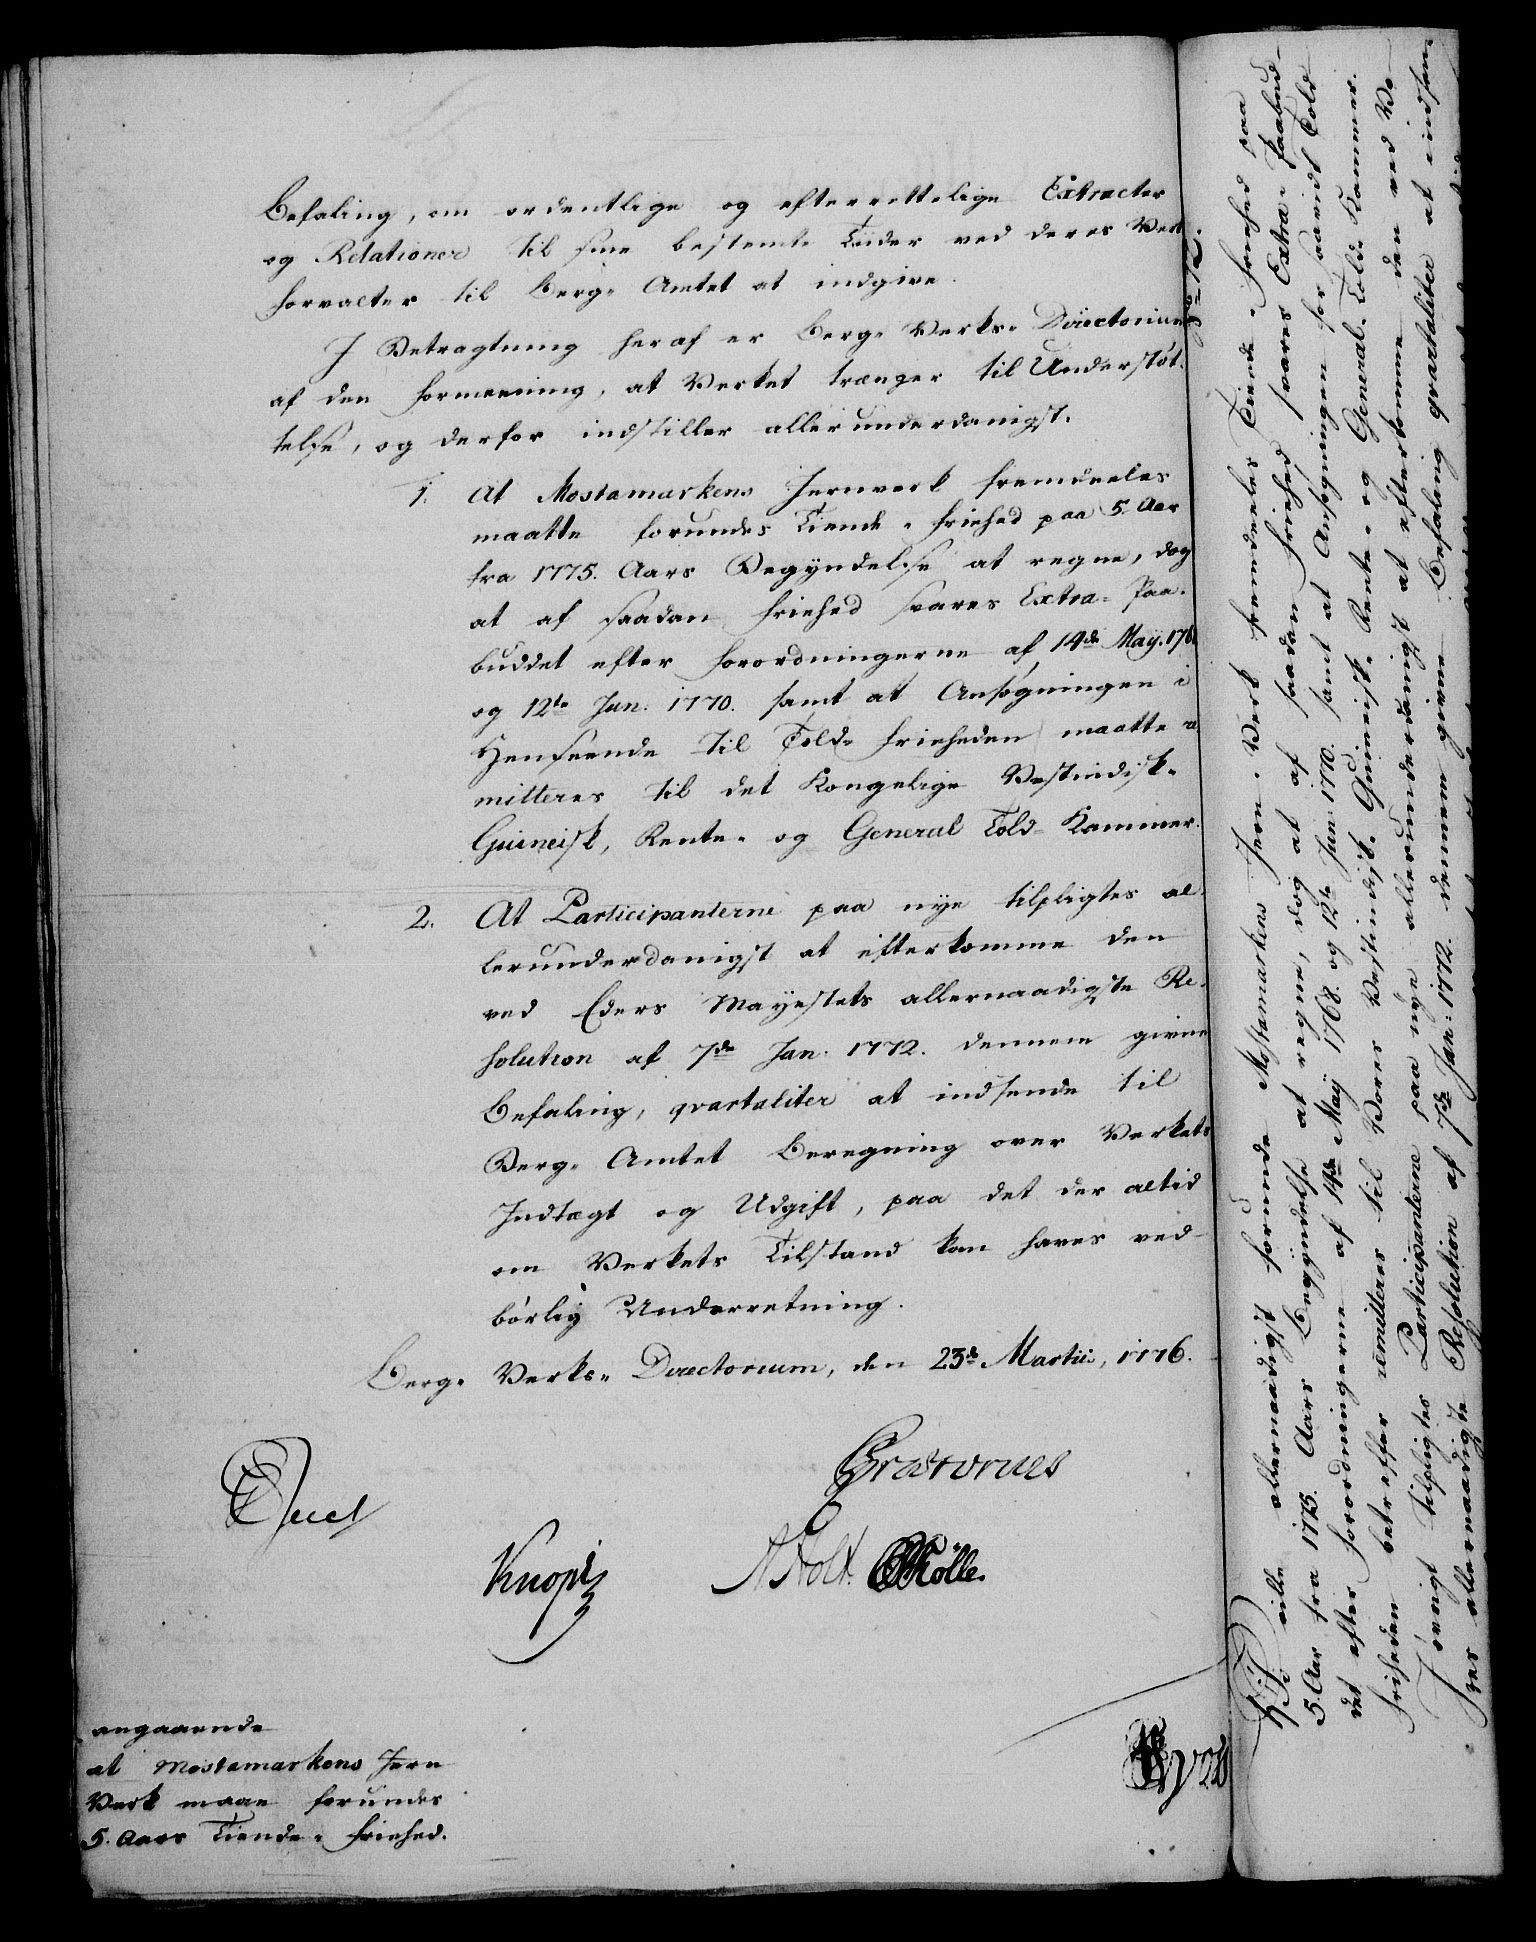 Befaling, om ordentlige og efterrettelige Extracter
og Relationer til sine bestemte Tiider ved deres Verk
forvalter til Berg- Amtet at indgive.
I Betragtning heraf er Berg- Verks- Directorium
af den formeening, at Verket trænger til Understøt-
telse, og derfor indstiller allerunderdanigst.
1. At Mostamarkens Jernverk fremdeeles
maatte forundes Tiende- friehed paa 5. Aar
fra 1775. Aars Begÿndelse at regne, dog
at af saadan friehed svares Extra- Paa-
buddet efter forordningerne af 14de Maÿ. 1768
og 12te Jun. 1770. samt at Ansøgningen i
Henseende til Told- frieheden maatte re
mitteres til det Kongelige Vestindisk-
Guineisk, Rente- og General Told- Kammer.
2. At Participanterne paa nye tilpligtes al-
lerunderdanigst at efterkomme den
ved Eders Mayestets allernaadigste Re-
solution af 7de Jan. 1772. dennem givne
Befaling, qvartaliter at indsende til
Berg- Amtet Beregning over Verkets
Indtægt og Udgift, paa det der altid
om Verkets Tilstand kan haves ved-
børlig Underretning.
Berg- Verks- Directorium, den 23de Martii, 1776.
Juel
Knoph
A Holt.
angaaende
at Mostamarkens Jern
Verk maae forundes
5. Aars Tiende- friehed.
Vi ville allernaadigst forunde Mostamarkens Jern- Verk fremdeeles Tiende- friehed paa
5. Aar fra 1775. Aars Begÿndelse at regne, dog at af saadan friehed svares Extra- Paabud-
det efter forordningerne af 14de Maÿ 1768. og 12te Jun: 1770. samt at Ansøgningen for saavidt Told
friheden betreffer remitteres til Vores Vestindisk- Guineisk- Rente- og General- Told- Kammer.
I øvrigt tilpligtes Participanterne paa nye allerunderdanigst at efterkomme den ved Vo-
res allernaadigste Resolution af 7de Jan: 1772. dennem givne Befaling qvartaliter at indsen-